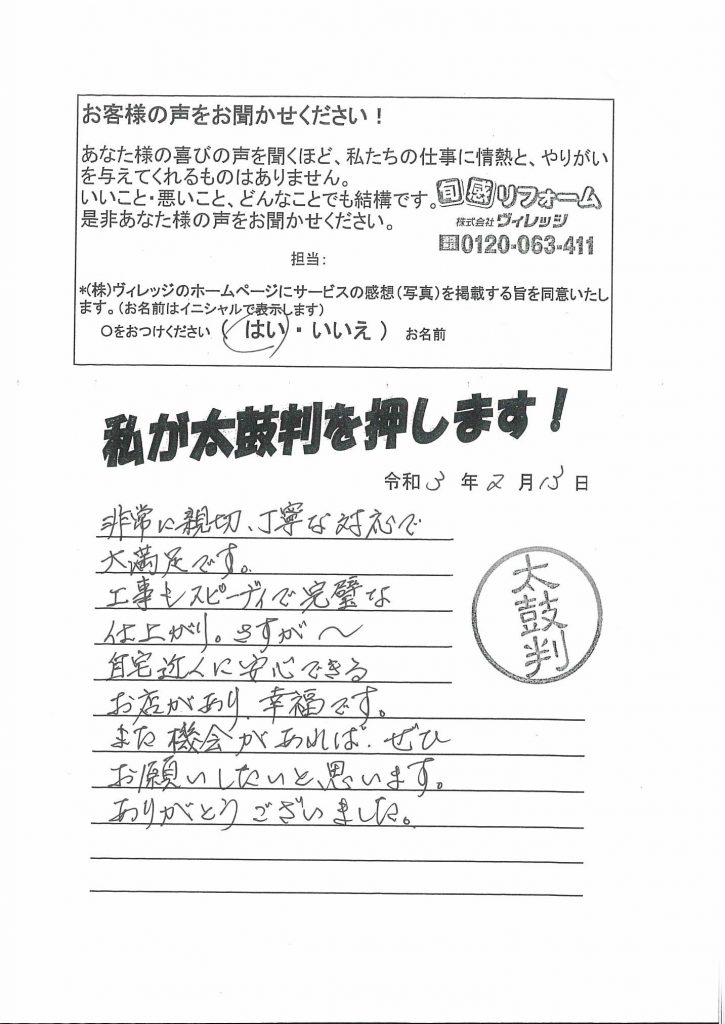 お客様の声をお聞かせください！
あなた様の喜びの声を聞くほど、私たちの仕事に情熱と、やりがい
を与えてくれるものはありません。
いいこと・悪いこと、どんなことでも結構です。
是非あなた様の声をお聞かせください。
旬感リフォーム
株式会社 ヴィレッジ
0120-063-411
担当：
*(株)ヴィレッジのホームページにサービスの感想(写真)を掲載する旨を同意いたし
ます。(お名前はイニシャルで表示します)
○をおつけください ( はい ・ いいえ ) お名前
私が太鼓判を押します！
令和 3 年 2 月 13 日
非常に親切、丁寧な対応で
大満足です。
工事もスピーディで完璧な
仕上がり。さすが〜
自宅近くに安心できる
お店があり、幸福です。
また機会があれば、ぜひ
お願いしたいと思います。
ありがとうございました。
太鼓判